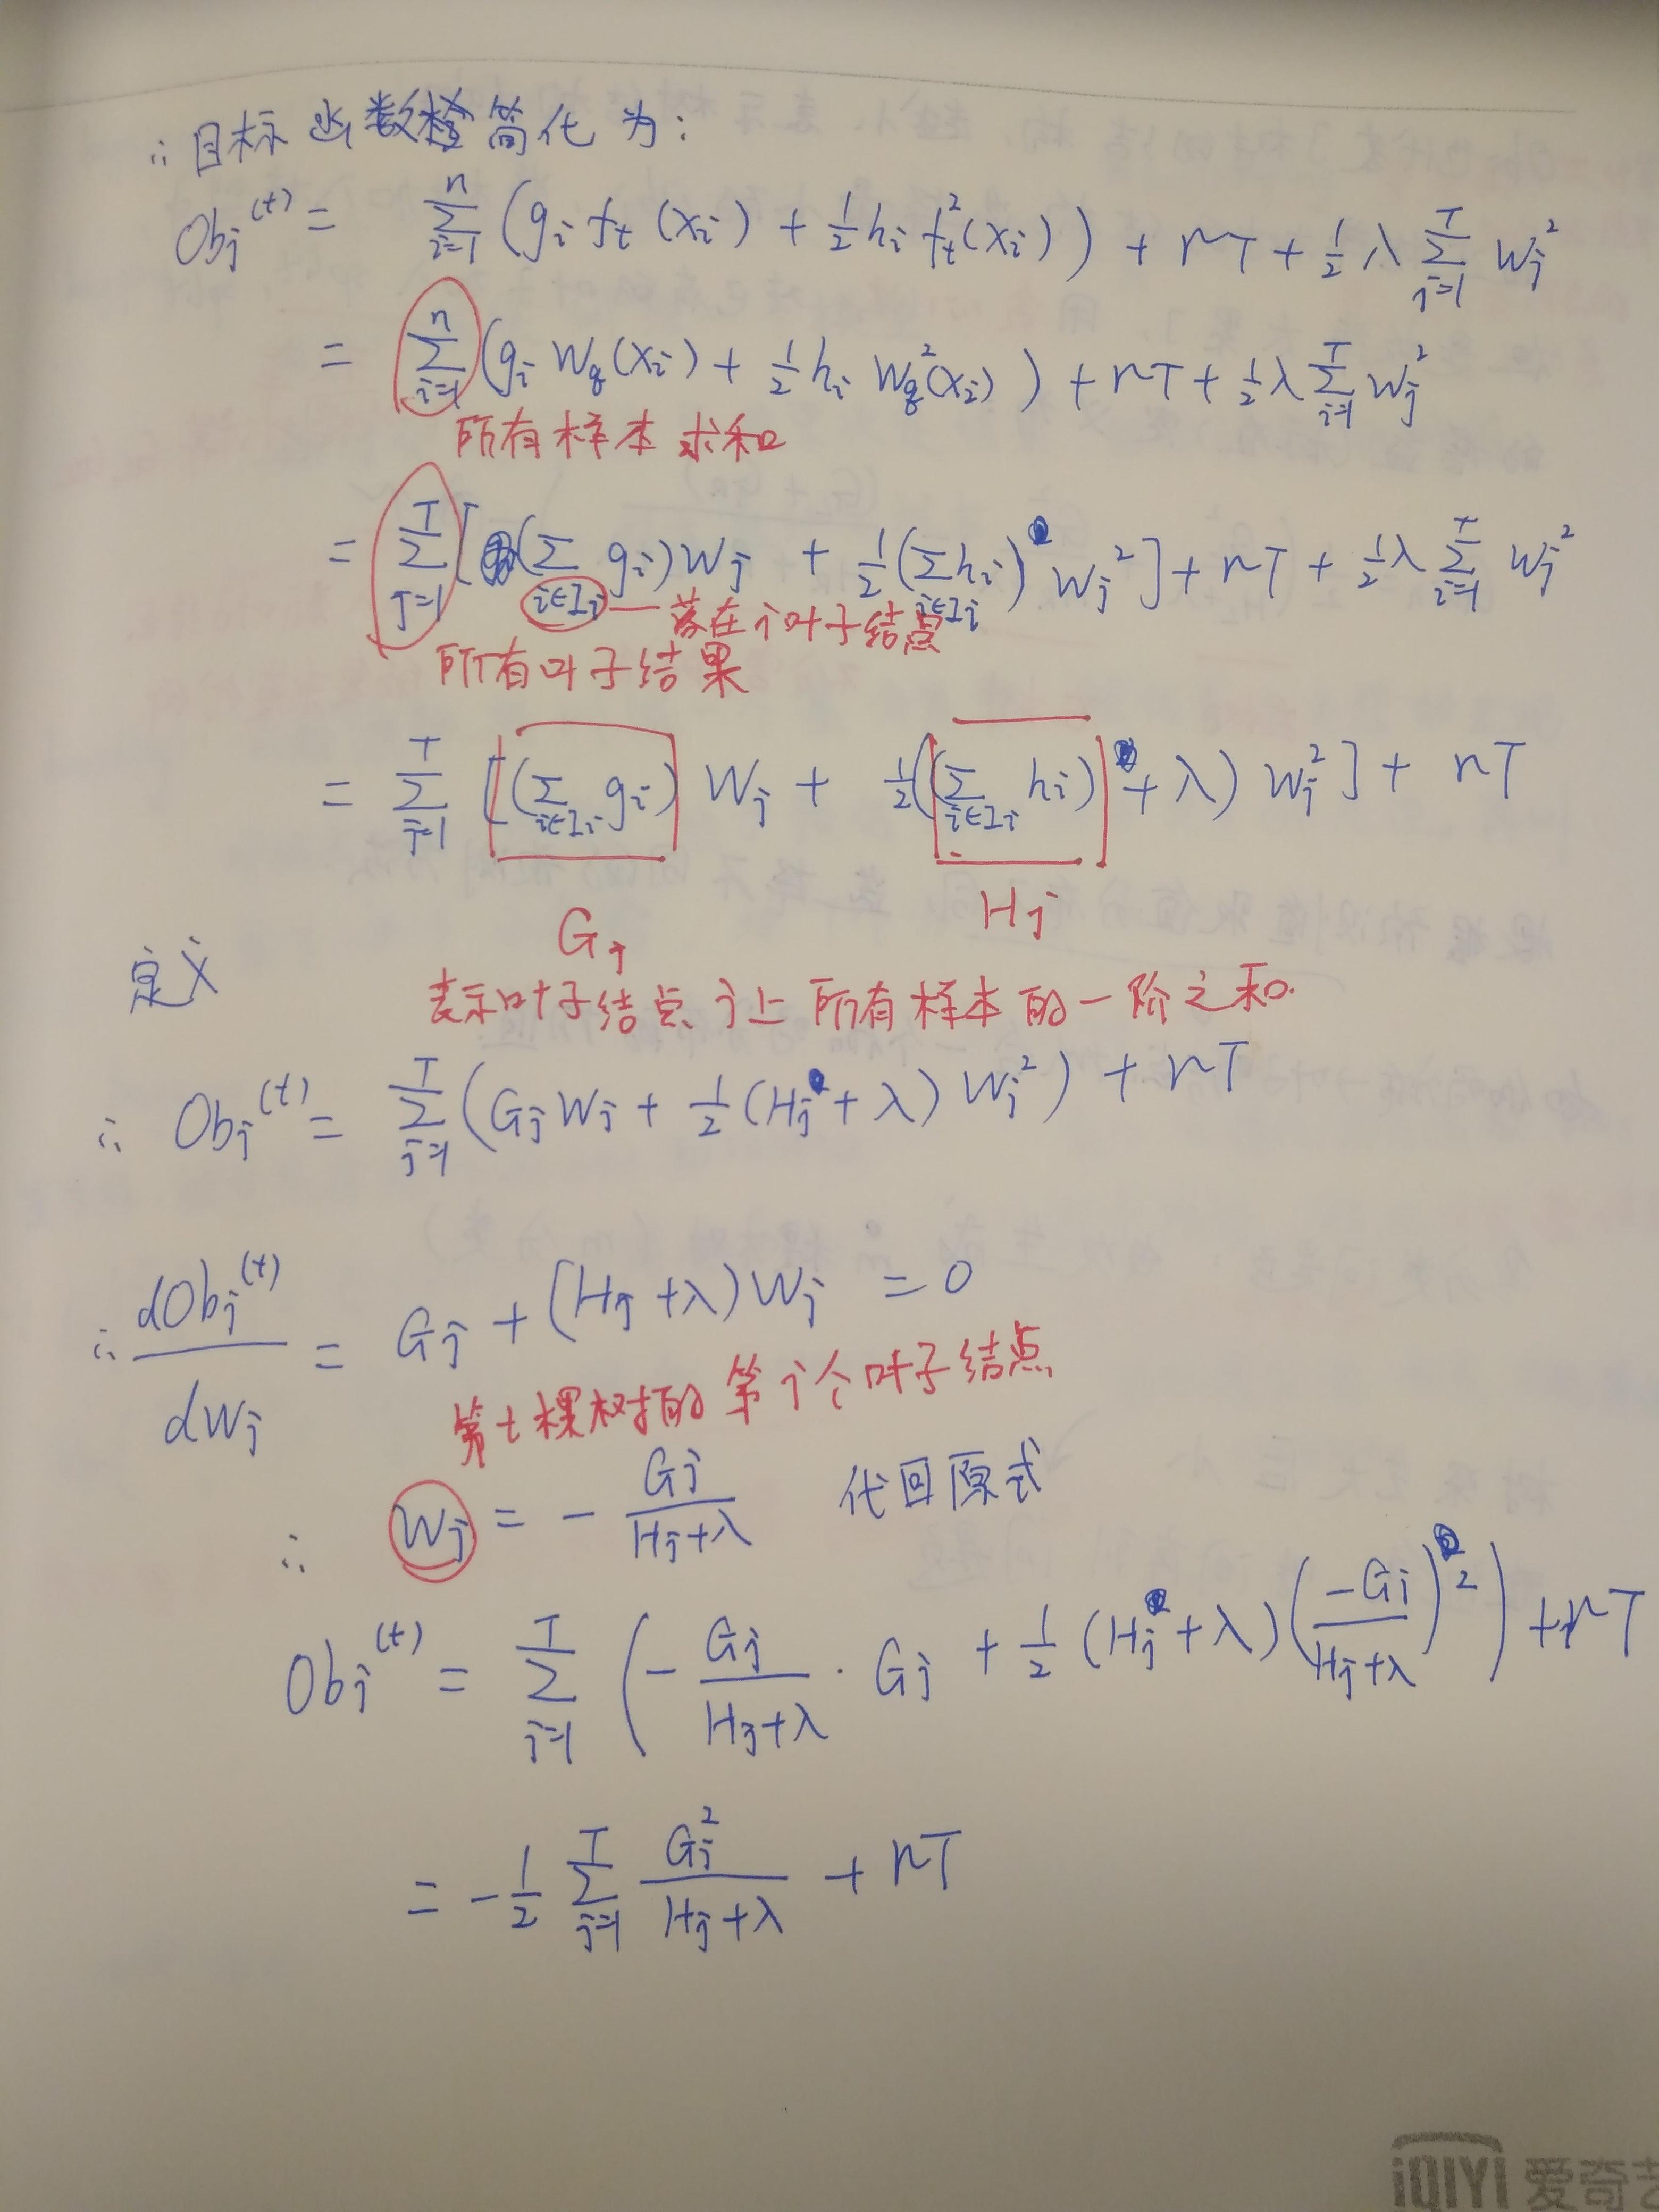 ∴目标函数简化为:
Obj^(t) = Σ_{i=1}^{n} (g_i f_t(x_i) + ½ h_i f_t²(x_i)) + rT + ½ λ Σ_{j=1}^{T} w_j²
= Σ_{i=1}^{n} (g_i W_q(x_i) + ½ h_i W_q²(x_i)) + rT + ½ λ Σ_{j=1}^{T} w_j²
所有样本求和
= Σ_{J=1}^{T} [(Σ_{i∈I_j} g_i) w_j + ½ (Σ_{i∈I_j} h_i) w_j²] + rT + ½ λ Σ_{j=1}^{T} w_j²
落在j叶子结点
所有叶子结果
= Σ_{j=1}^{T} [(Σ_{i∈I_j} g_i) w_j + ½ ((Σ_{i∈I_j} h_i) + λ) w_j²] + rT
G_j H_j
定义
表示叶子结点j上所有样本的一阶之和.
∴ Obj^(t) = Σ_{j=1}^{T} (G_j w_j + ½ (H_j + λ) w_j²) + rT
∴ dObj^(t) / dw_j = G_j + (H_j + λ) w_j = 0
第t棵树的第j个叶子结点
∴ w_j = - G_j / (H_j + λ) 代回原式
Obj^(t) = Σ_{j=1}^{T} (- G_j / (H_j + λ) · G_j + ½ (H_j + λ) (-G_j / (H_j + λ))²) + rT
= -½ Σ_{j=1}^{T} G_j² / (H_j + λ) + rT
iQIYI 爱奇艺